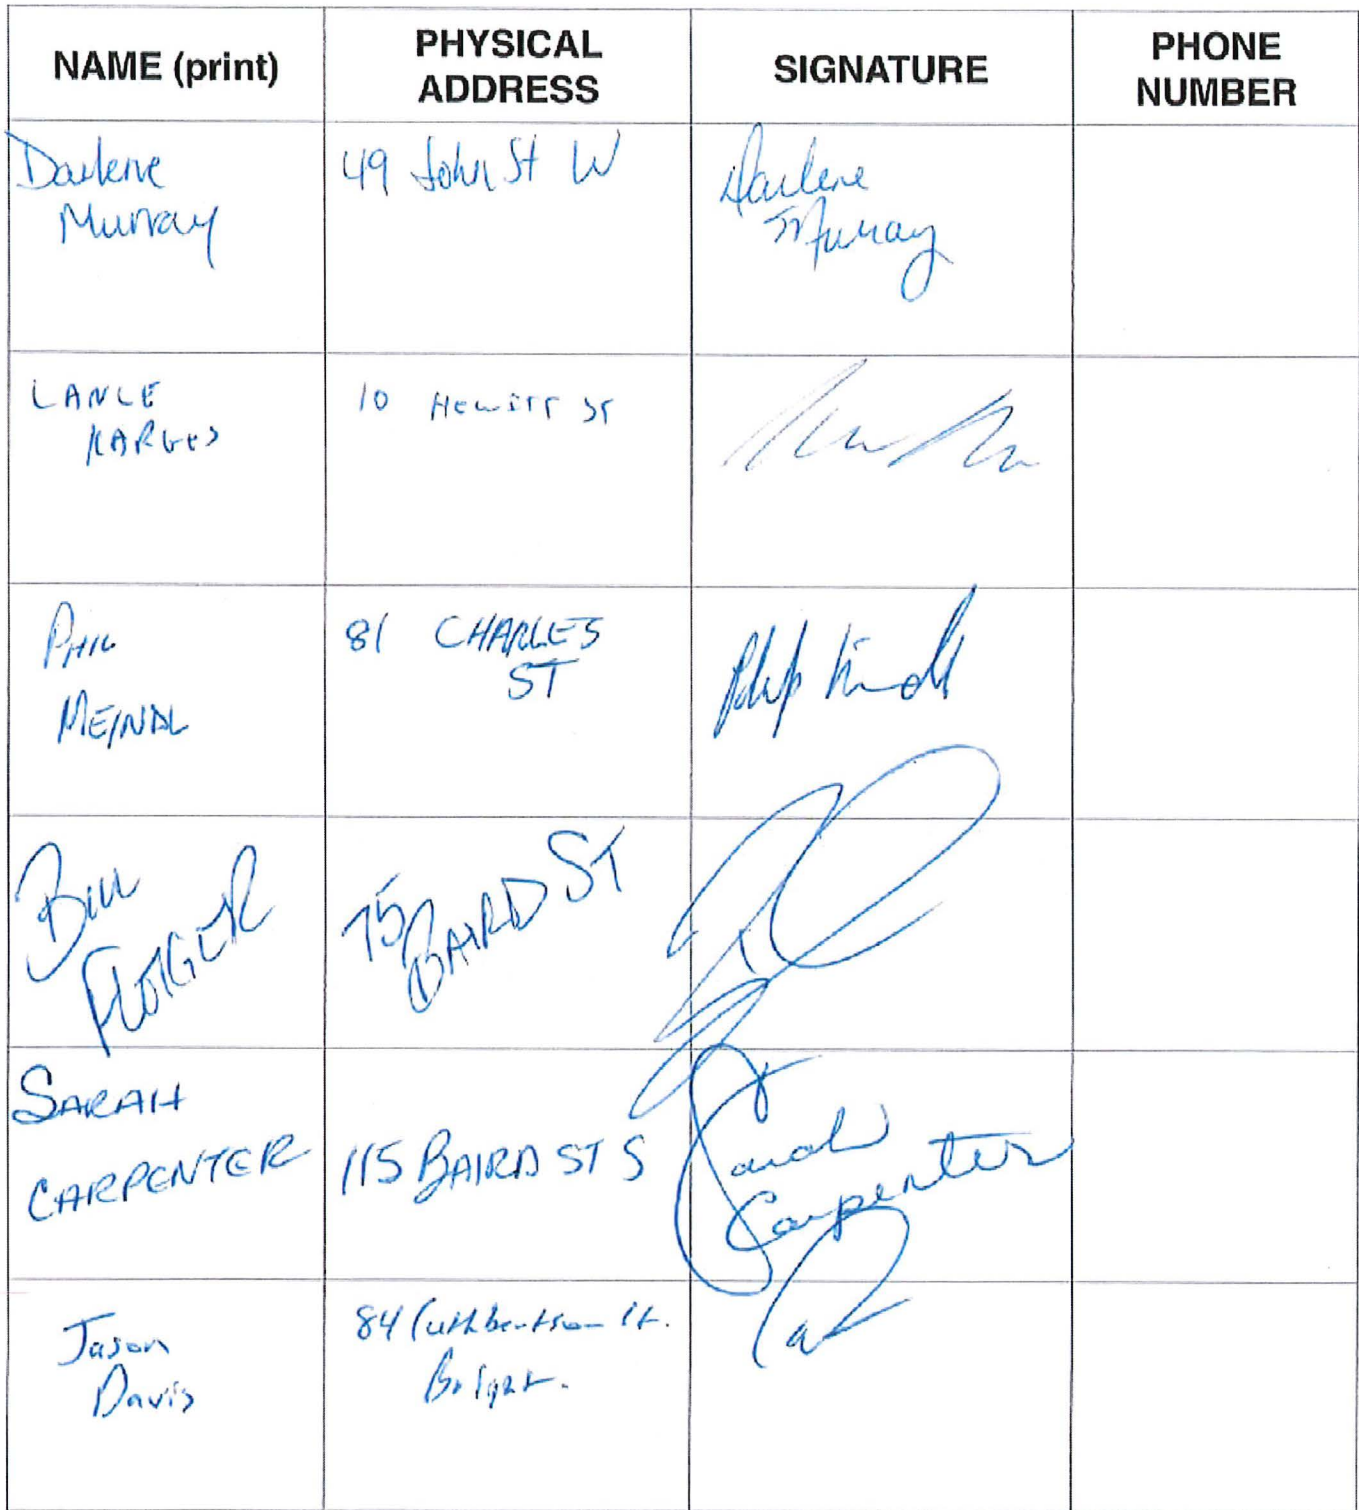 NAME (print)
PHYSICAL
ADDRESS
SIGNATURE
PHONE
NUMBER
Darlene
Murray
49 John St W
Darlene
Murray
LANCE
KARGES
10 Hewitt St
PHIL
MEINDL
81 CHARLES
ST
BILL
75
BAIRD ST
SARAH
CARPENTER
115 BAIRD ST S
Sarah
Carpenter
Jason
Davis
84 Cuthbertson St.
Bright.